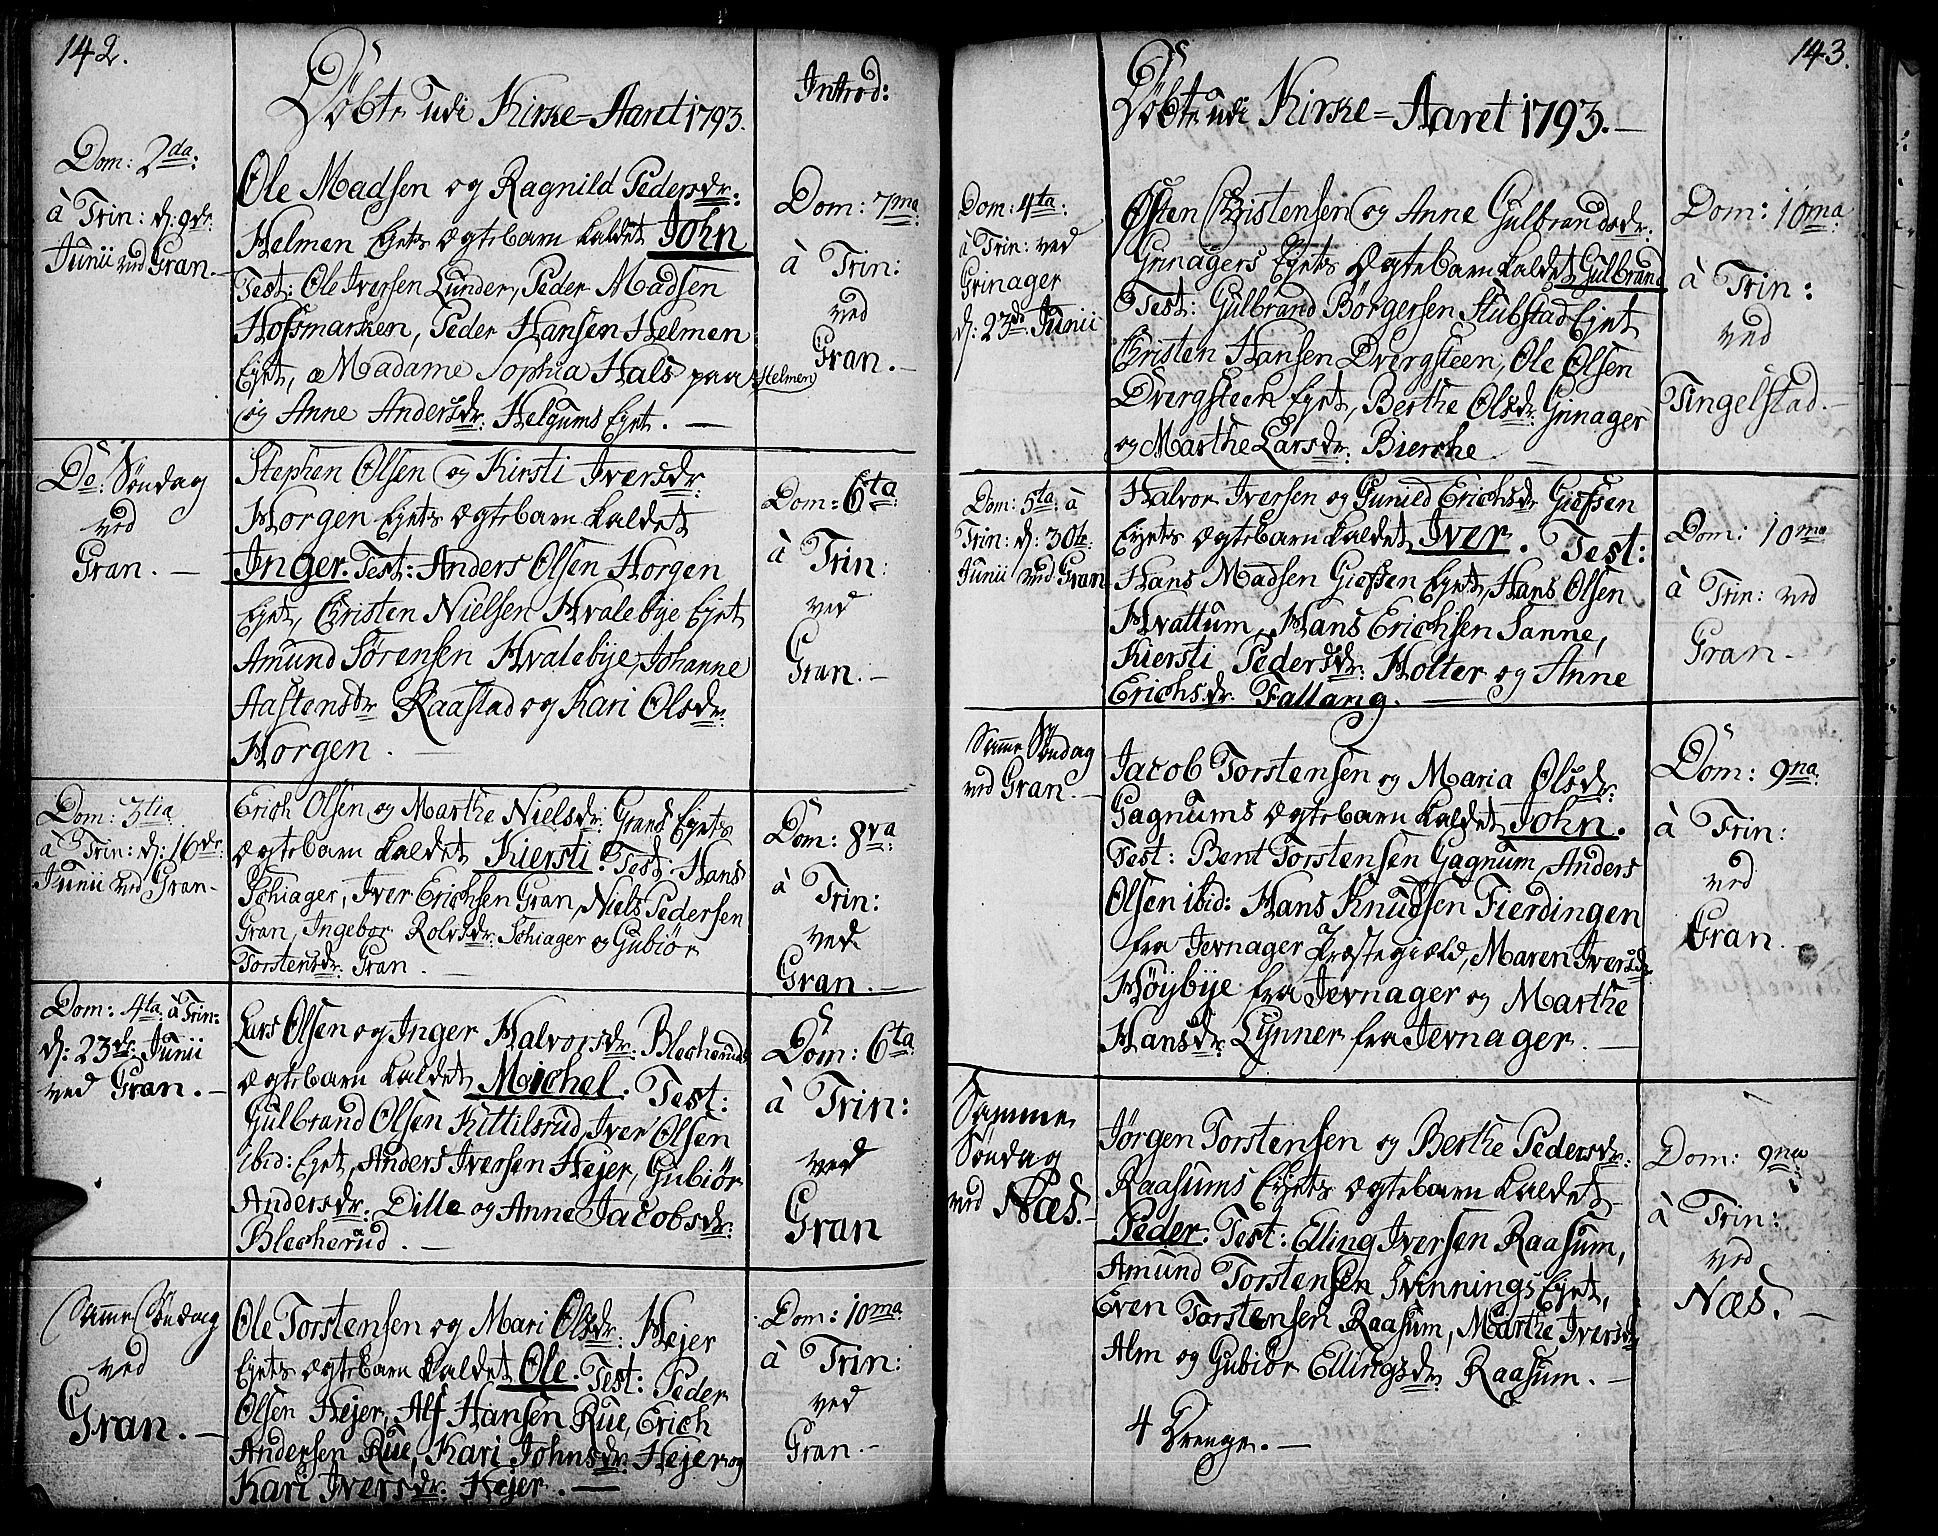 142.
Döbte udi Kirke=Aaret 1793.
Introd:
Dom: 2da:
à Trin: d: 9de
Junii ved Gran.
Ole Madsen og Ragnild Pedersdr:
Helmen Ejets Ægtebarn kaldet John
Test: Ole Iversen Lunder, Peder Madsen
Hofsmarken, Peder Hansen Helmen
Ejet, Madame Sophia Hals paa Helmen
og Anne Andersdr: Helgums Ejet. —
Dom: 7ma
à Trin:
ved
Gran. —
Do: Søndag
ved
Gran. —
Stephen Olsen og Kirsti Iversdr:
Horgen Ejets Ægtebarn kaldet
Inger. Test: Anders Olsen Horgen
Ejet, Christen Nielsen Hvalebye Ejet
Amund Sørensen Hvalebye, Johanne
Aastensdr Raastad og Kari Olsdr:
Horgen. —
Dom: 6ta
à Trin:
ved
Gran. —
Dom: 3tia
à Trin: d: 16de
Junii ved Gran.
Erich Olsen og Marthe Nielsdr: Grans Ejets
Ægtebarn kaldet Kiersti. Test: Hans
Schiager, Iver Erichsen Gran, Niels Pedersen
Gran, Ingebor Rolvsdr: Schiager og Gubiør
Torstensdr: Gran.
Dom: 8va
à Trin:
ved
Gran. —
Dom: 4ta à Trin:
d: 23de Junii
ved Gran. —
Lars Olsen og Inger Halvorsdr: Blecheruds
Ægtebarn kaldet Michel. Test:
Gulbrand Olsen Kittilsrud, Iver Olsen
ibid: Ejet, Anders Iversen Hejer, Gubiør
Andersdr: Dille og Anne Jacobsdr:
Blecherud. —
Dom: 6ta
à Trin:
ved
Gran
Samme Søndag
ved
Gran. —
Ole Torstensen og Mari Olsdr: Hejer
Ejets Ægtebarn kaldet Ole. Test: Peder
Olsen Hejer, Alf Hansen Rue, Erich
Andersen Rue, Kari Johnsdr: Hejer og
Kari Iversdr: Hejer. —
Dom: 10ma
à Trin:
ved
Gran. —
143.
Döbte udi Kirke=Aaret 1793. —
Dom: 4ta:
à Trin: ved
Grinager
d: 23de Junii
Østen Christensen og Anne Gulbrandsdr:
Grinagers Ejets Ægtebarn kaldet Gulbrand
Test: Gulbrand Børgersen Stubstad Ejet
Christen Hansen Dvergsteen, Ole Olsen
Dvergsteen Ejet, Berthe Olsdr: Grinager
og Marthe Larsdr: Bierche
Dom: 10ma
à Trin:
ved
Tingelstad. —
Dom: 5ta à
Trin: d: 30te
Junii ved Gran
Halvor Iversen og Gunild Erichsdr Giefsen
Ejets Ægtebarn kaldet Iver. Test:
Hans Madsen Giefsen Ejet, Hans Olsen
Hvattum, Hans Erichsen Sanne,
Kiersti Pedersdr: Holter og Anne
Erichsdr: Fallang. —
Dom: 10ma
à Trin: ved
Gran. —
Samme Søndag
ved Gran. —
Jacob Torstensen og Maria Olsdr:
Gagnums Ægtebarn kaldet John.
Test: Bent Torstensen Gagnum, Anders
Olsen ibid: Hans Knudsen Fierdingen
fra Jevnager Præstegiæld, Maren Iversdr
Høybye fra Jevnager og Marthe
Hansdr: Lynner fra Jevnager. —
Dom: 9na
à Trin:
ved
Gran. —
Samme
Søndag
ved Næs. —
Jørgen Torstensen og Berthe Pedersdr:
Raasums Ejets Ægtebarn kaldet
Peder. Test: Elling Iversen Raasum,
Amund Torstensen Tvinnings Ejet,
Even Torstensen Raasum, Marthe Iversdr
Alm og Gubiør Ellingsdr: Raasum. —
4 Drenge. —
Dom: 9na
à Trin:
ved
Næs. —